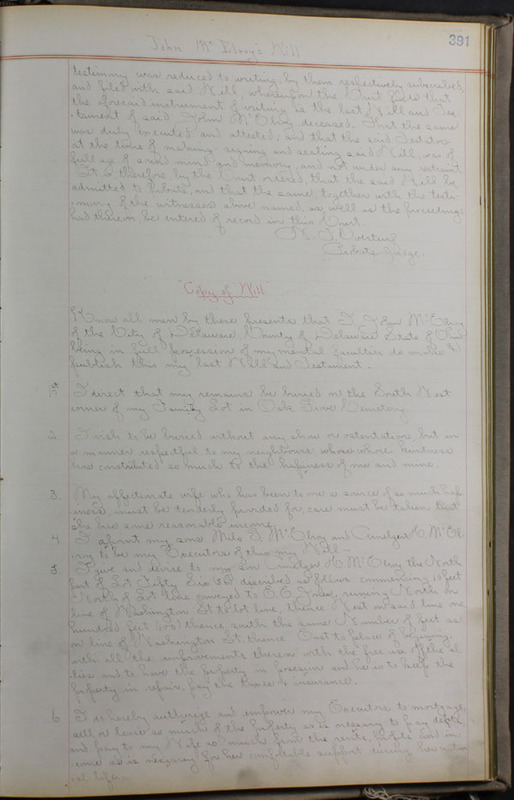 391
John Mc Elroy's Will
testimony was reduced to writing by them respectively subscribed
and filed with said Will, whereupon the Court finds that
the aforesaid instrument of writing is the last Will and Tes-
tament of said John McElroy deceased. That the same
was duly executed and attested, and that the said Testator
at the time of making signing and sealing said Will, was of
full age of sound mind and memory, and not under any restraint
It is therefore by the Court ordered, that the said Will be
admitted to Probate, and that the same, together with the testi-
mony of the witnesses above named, as well as the proceedings
had therein be entered of record in this Court.
Overturf
Probate Judge.
"Copy of Will"
Know all men by these presents that I John McElroy
of the City of Delaware County of Delaware State of Ohio
being in full possession of my mental faculties do make &
publish this my last Will and Testament.
1st I direct that my remains be buried on the South West
corner of my Family Lot in Oak Grove Cemetery.
2. I wish to be buried without any show or ostentation, but in
a manner respectful to my neighbours whose kindness
has contributed so much to the happiness of me and mine.
3. My affectionate wife who has been to me a source of so much hap-
iness must be tenderly provided for, care must be taken that
she has some reasonable income.
4. I appoint my sons McElroy and H. McEl-
roy to be my Executors of this my Will.
5. I give and devise to my Son H. McElroy the North
part of Lot Fifty Six described as follows commencing feet
North of Lot line conveyed to running North on
line of Washington St to lot line, thence West on said line one
hundred feet thence south the same Number of feet as
on line of Washington St. thence East to place of beginning,
with all the improvements thereon with the free use of the al-
ties and to have the property in possession and he is to keep the
property in repair, pay the taxes & insurance.
6. I hereby authorize and empower my Executors to mortgage,
sell or lease so much of the property as is necessary to pay debts
and pay to my Wife so much from the rents, and in-
come as is necessary for her comfortable support during her natur
al life.